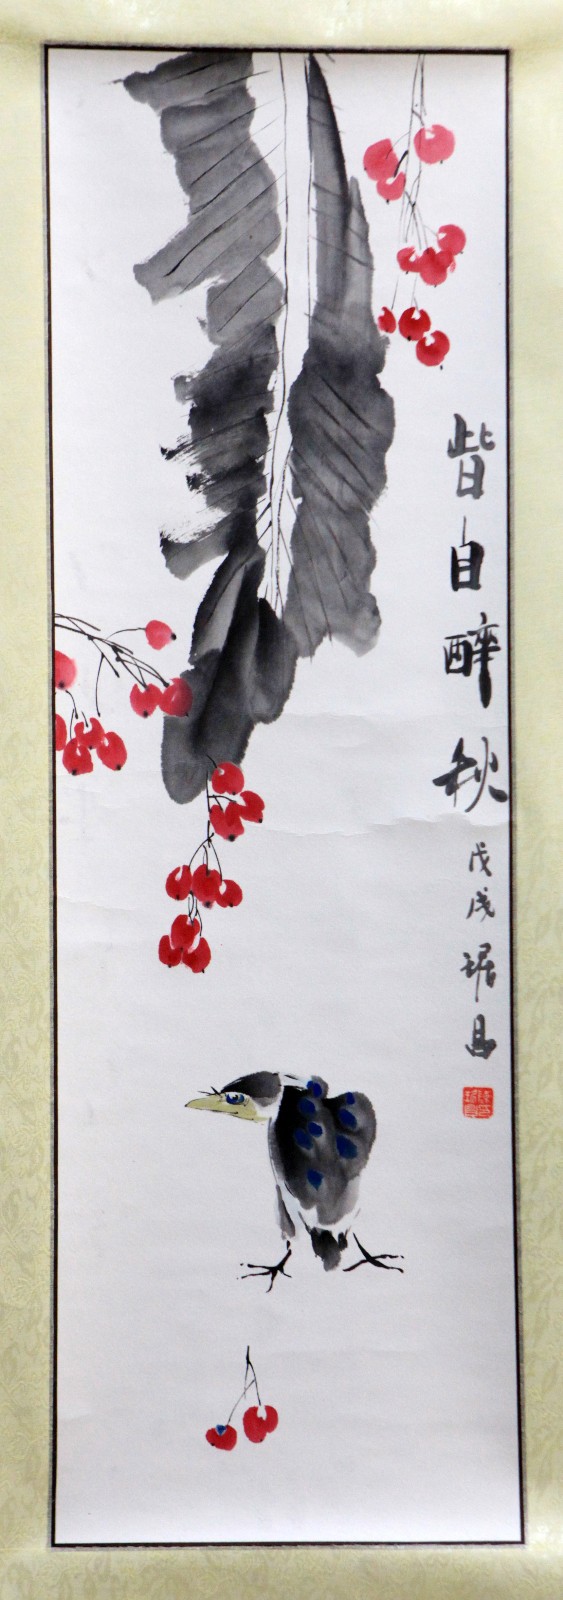 皆自醉秋
戊戌 琚昌